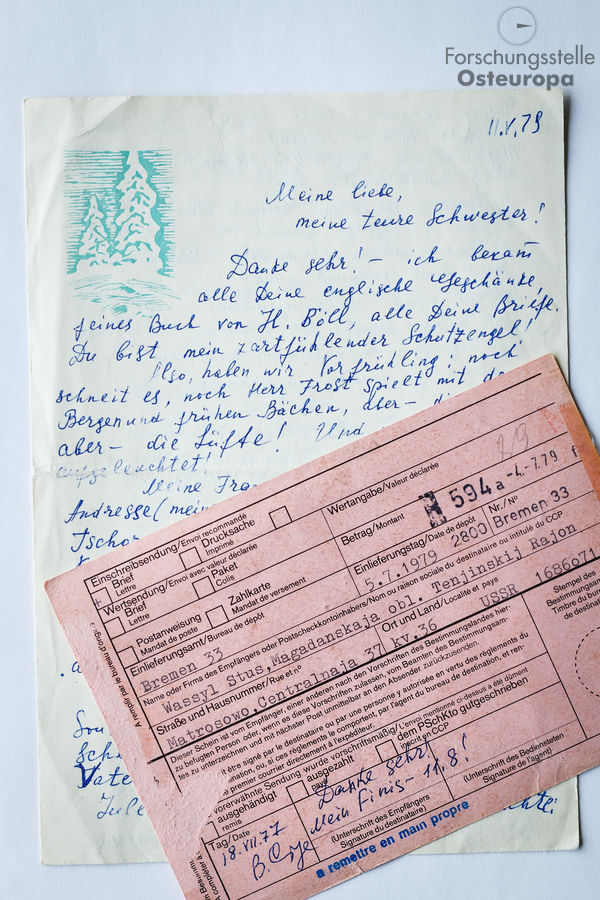 Forschungsstelle
Osteuropa
11.V.79
Meine liebe,
meine teure Schwester!
Danke sehr! – ich bekam
alle Deine englische Geschänke,
feines Buch von H. Böll, alle Deine Briefe.
Du bist mein zartfühlender Schutzengel!
Also, haben wir Vorfrühling: noch
schneit es, noch Herr Frost spielt mit
Bergen und frühen Bächen, aber –
aber – die Lüfte! Und
aufgeleuchtet!
Meine
Andresse (
A remplir par le bureau d'orig.
Einschreibsendung/Envoi recommandé
Brief
Lettre
Drucksache
Imprimé
Wertsendung/Envoi avec valeur déclarée
Brief
Lettre
Paket
Colis
Postanweisung
Mandat de poste
Zahlkarte
Mandat de versement
Wertangabe/Valeur déclarée
Betrag/Montant
594a -4.-7.79
Einlieferungsamt/Bureau de dépôt
Bremen 33
Einlieferungstag/Date de dépôt
5.7.1979
Nr./N°
2800 Bremen 33
Name oder Firma des Empfängers oder Postscheckkontoinhabers/Nom ou raison sociale du destinataire ou intitulé du CCP
Wassyl Stus, Magadanskaja obl. Tenjinskij Rajon
Straße und Hausnummer/Rue et n°
Ort und Land/Localité et pays
Matrosowo, Centralnaja 37 kv.36 USSR 1686071
Dieser Schein ist vom Empfänger, einer anderen nach den Vorschriften des Bestimmungslandes hier-
zu befugten Person oder, wenn es diese Vorschriften zulassen, vom Beamten des Bestimmungsam-
tes zu unterzeichnen und mit nächster Post unmittelbar an den Absender zurückzusenden.
it être signé par le destinataire ou par une personne y autorisée en vertu des règlements du
ation, ou, si ces règlements le comportent, par l'agent du bureau de destination, et ren-
premier courrier directement à l'expéditeur.
vorerwähnte Sendung wurde vorschriftsmäßig/
envoi mentionné ci-dessus a été dûment
ausgehändigt
remis
ausgezahlt
payé
dem PSchKto gutgeschrieben
inscrit en CCP
Stempel des
Bestimmungsam
Timbre du bure
de destina
Danke sehr!
Mein Finis – 11.8!
Tag/Date
18.VII.77
(Unterschrift des Empfängers
Signature du destinataire)
(Unterschrift des Bediensteten
Signature de l'agent)
a remettre en main propre